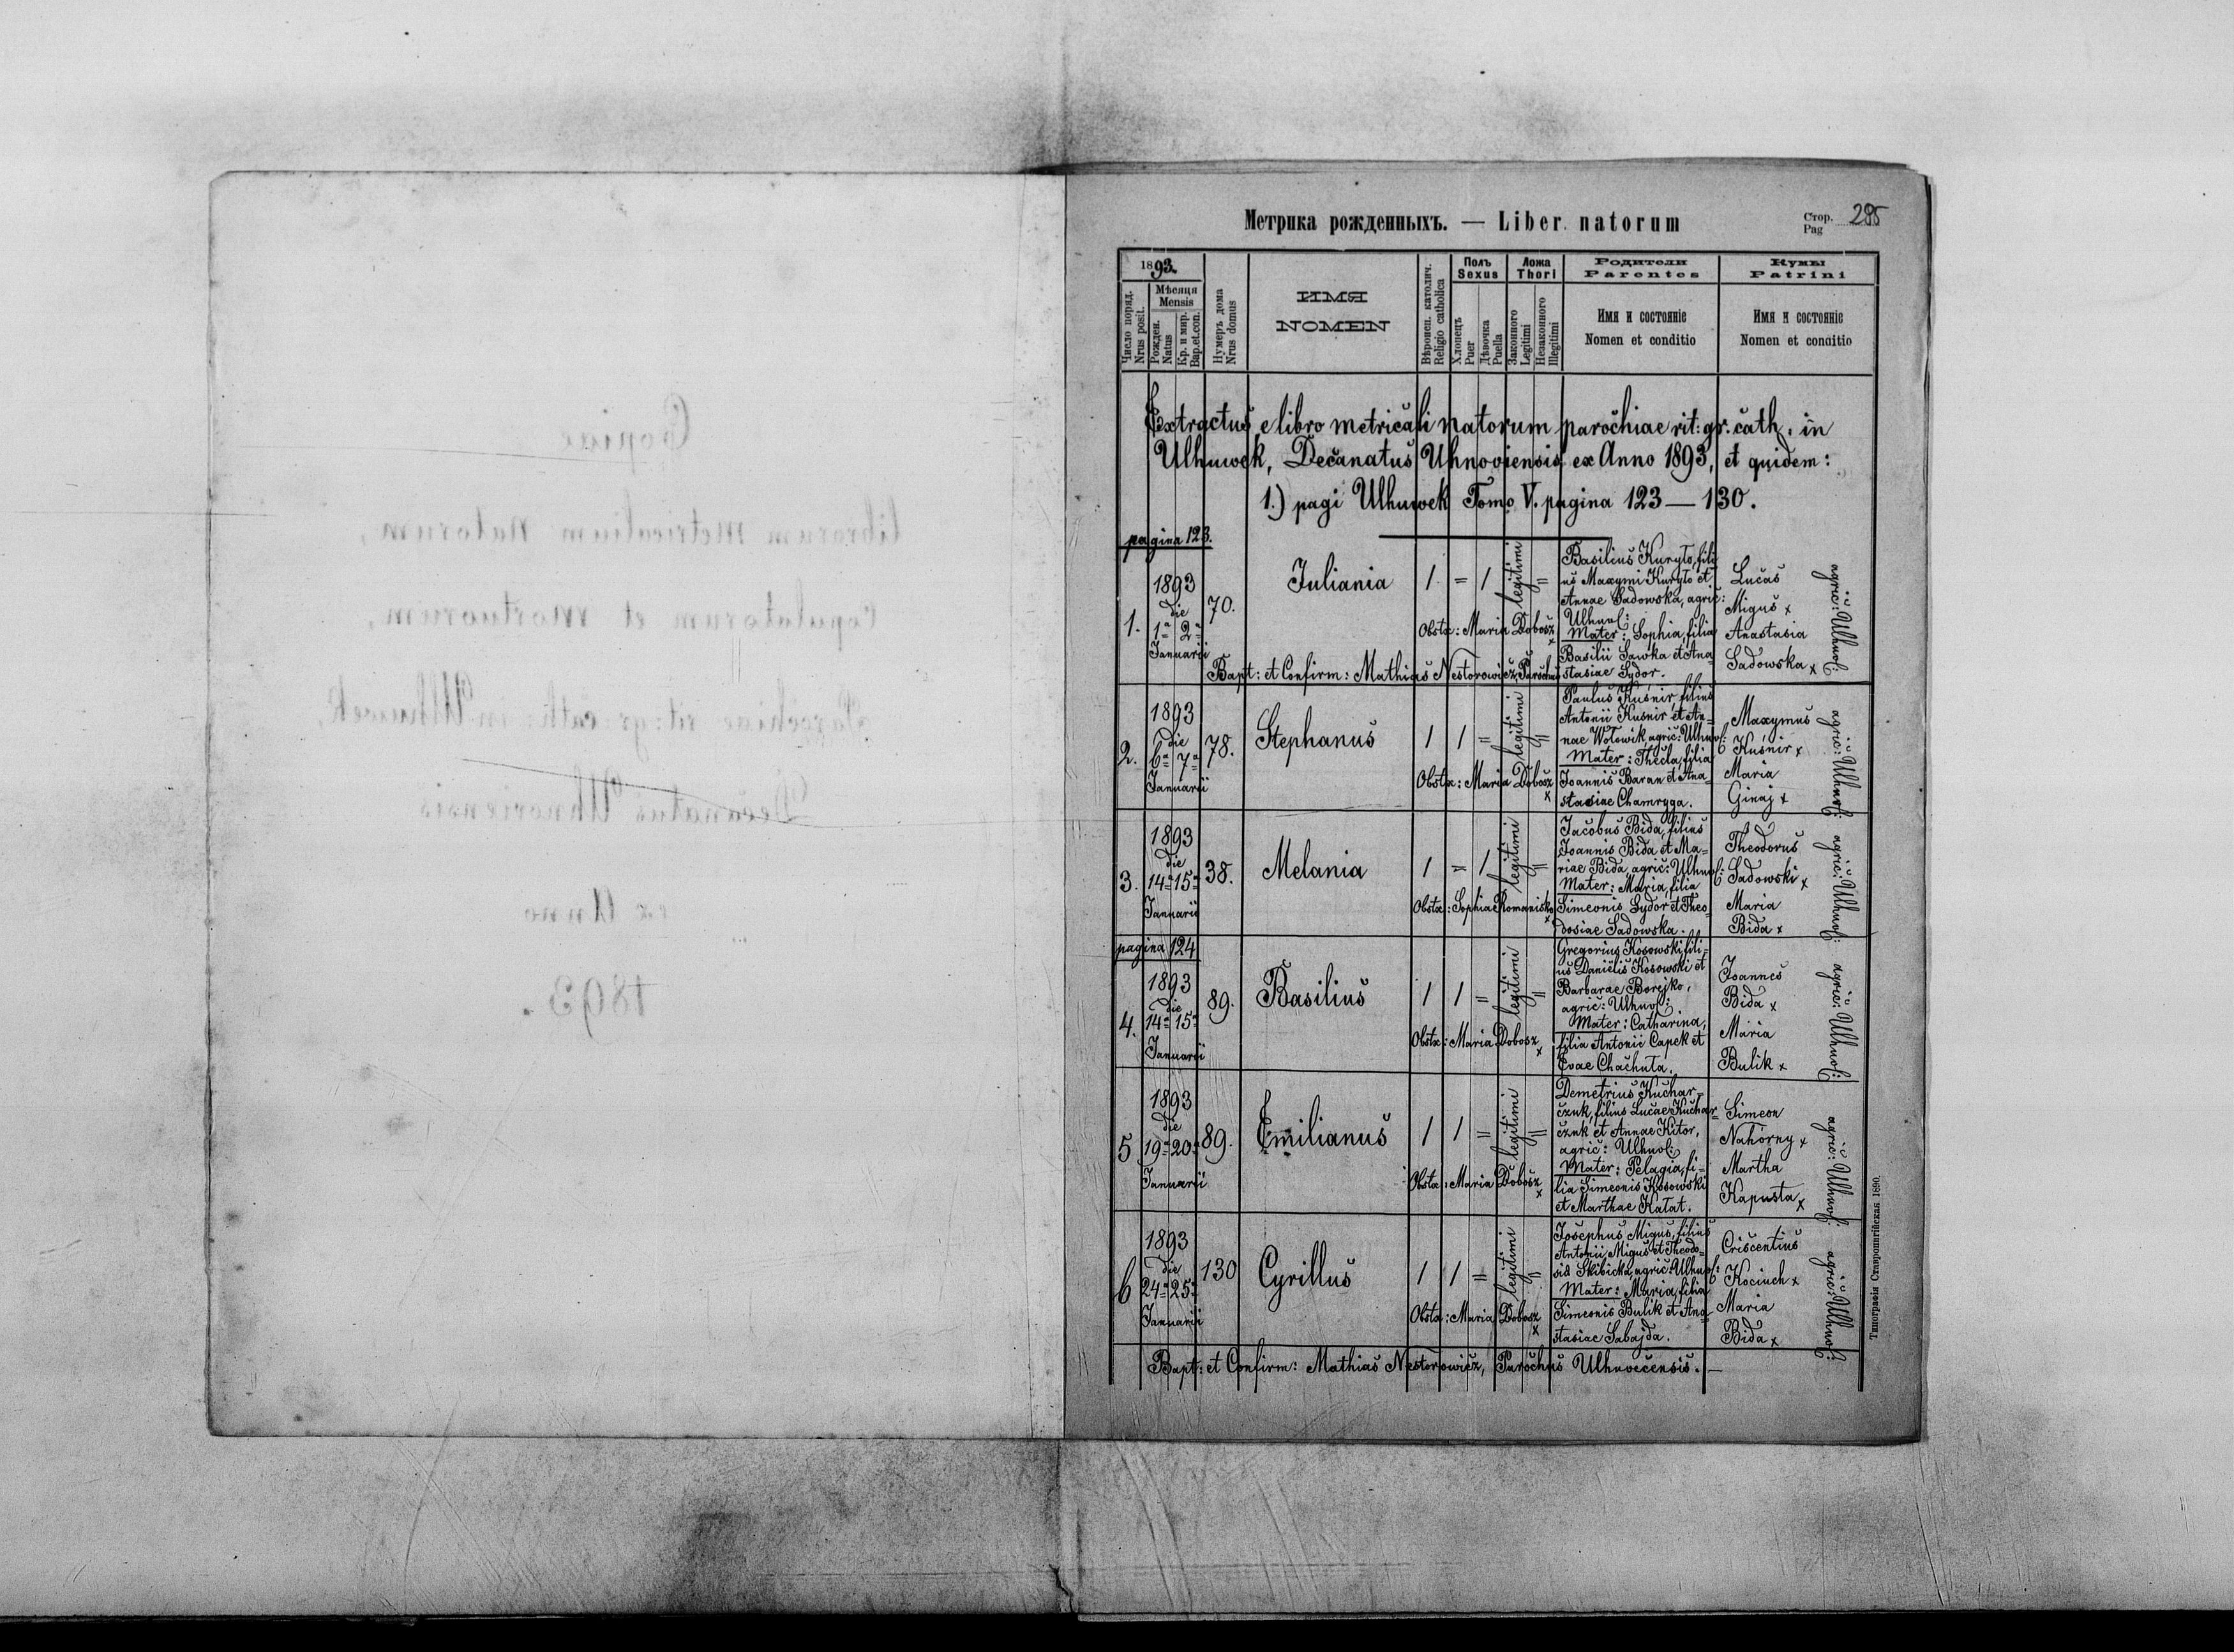 Метрика рожденныхъ. — Liber natorum
Стор. Pag 285
1893.
Число поряд. Nrus posit.
Мѣсяця Mensis
Рожден. Natus
Кр. и мир. Bap.et.con.
Нумеръ дома Nrus domus
ИМЯ
NOMEN
Вѣроисп. католич. Religio catholica
Полъ Sexus
Хлопецъ Puer
Дѣвочка Puella
Ложа Thori
Законного Legitimi
Незаконного Illegitimi
Родители
Parentes
Имя и состояніе
Nomen et conditio
Кумы
Patrini
Имя и состояніе
Nomen et conditio
Extractus e libro metricali natorum parochiae rit: gr. cath. in
Ulhuwek, Decanatus Uhnoviensis ex Anno 1893, et quidem:
1.) pagi Ulhuwek Tomo V. pagina 123 — 130.
pagina 123.
1.
1893
die
1ᵃ 2ᵃ
Januarii
70.
Juliania
1 = 1 legitimi =
Obstx: Maria Dobosz x
Basilius Kuryło, fili-
us Maxymi Kuryło et
Annae Sadowska, agric:
Ulhuv:
Mater: Sophia, filia
Basilii Sawka et Ana
stasiae Sydor.
Lucas
Migus x
Anastasia
Sadowska x
agric: Ulhuv:
Bapt: et Confirm: Mathias Nestorowicz, Parochus
2.
1893
die
6ᵃ 7ᵃ
Januarii
78.
Stephanus
1 1 = legitimi =
Obstx: Maria Dobosz x
Paulus Kuśnir, filius
Antonii Kuśnir et An-
nae Wołowik agric: Ulhuv:
Mater: Thecla, filia
Joannis Baran et Ana-
stasiae Chamryga.
Maxymus
Kuśnir x
Maria
Ginaj x
agric: Ulhuv:
3.
1893
die
14ᵃ 15ᵃ
Januarii
38.
Melania
1 = 1 legitimi =
Obstx: Sophia Romanisko x
Jacobus Bida, filius
Joannis Bida et Ma-
riae Bida, agric: Ulhuv:
Mater: Maria, filia
Simeonis Sydor et Theo-
dosiae Sadowska.
Theodorus
Sadowski x
Maria
Bida x
agric: Ulhuv:
pagina 124
4.
1893
die
14ᵃ 15ᵃ
Januarii
89.
Basilius
1 1 = legitimi =
Obstx: Maria Dobosz x
Gregorius Kosowski, fili-
us Danielis Kosowski et
Barbarae Borejko,
agric: Ulhuv:
Mater: Catharina,
filia Antonii Capek et
Evae Chachuta.
Joannes
Bida x
Maria
Bulik x
agric: Ulhuv:
5
1893
die
19ᵃ 20ᵃ
Januarii
89.
Emilianus
1 1 = legitimi =
Obstx: Maria Dobosz x
Demetrius Kuchar-
czuk, filius Lucae Kuchar-
czuk et Annae Kitor,
agric: Ulhuv:
Mater: Pelagia, fi-
lia Simeonis Kosowski
et Marthae Kałat.
Simeon
Nahorny x
Martha
Kapusta x
agric: Ulhuv:
6
1893
die
24ᵃ 25ᵃ
Januarii
130
Cyrillus
1 1 = legitimi =
Obstx: Maria Dobosz x
Josephus Migus, filius
Antonii Migus et Theodo-
sia Skibicka, agric: Ulhuv:
Mater: Maria, filia
Simeonis Bulik et Ana-
stasiae Sabajda.
Criscentius
Kociuch x
Maria
Bida x
agric: Ulhuv:
Bapt: et Confirm: Mathias Nestorowicz, Parochus Ulhuvecensis. —
Типографія Ставропигійская 1890.
Copiae
librorum metricalium Natorum,
Copulatorum et Mortuorum,
Parochiae rit: gr: cath: in Ulhuwek,
Decanatus Uhnoviensis
ex Anno
1893.